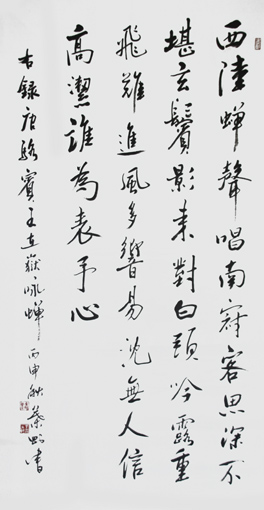 西陸蟬聲唱南冠客思深不
堪玄鬢影来對白頭吟露重
飛難進風多響易沈無人信
高潔誰為表予心
右録唐駱賓王在獄咏蟬 丙申秋 蔡書